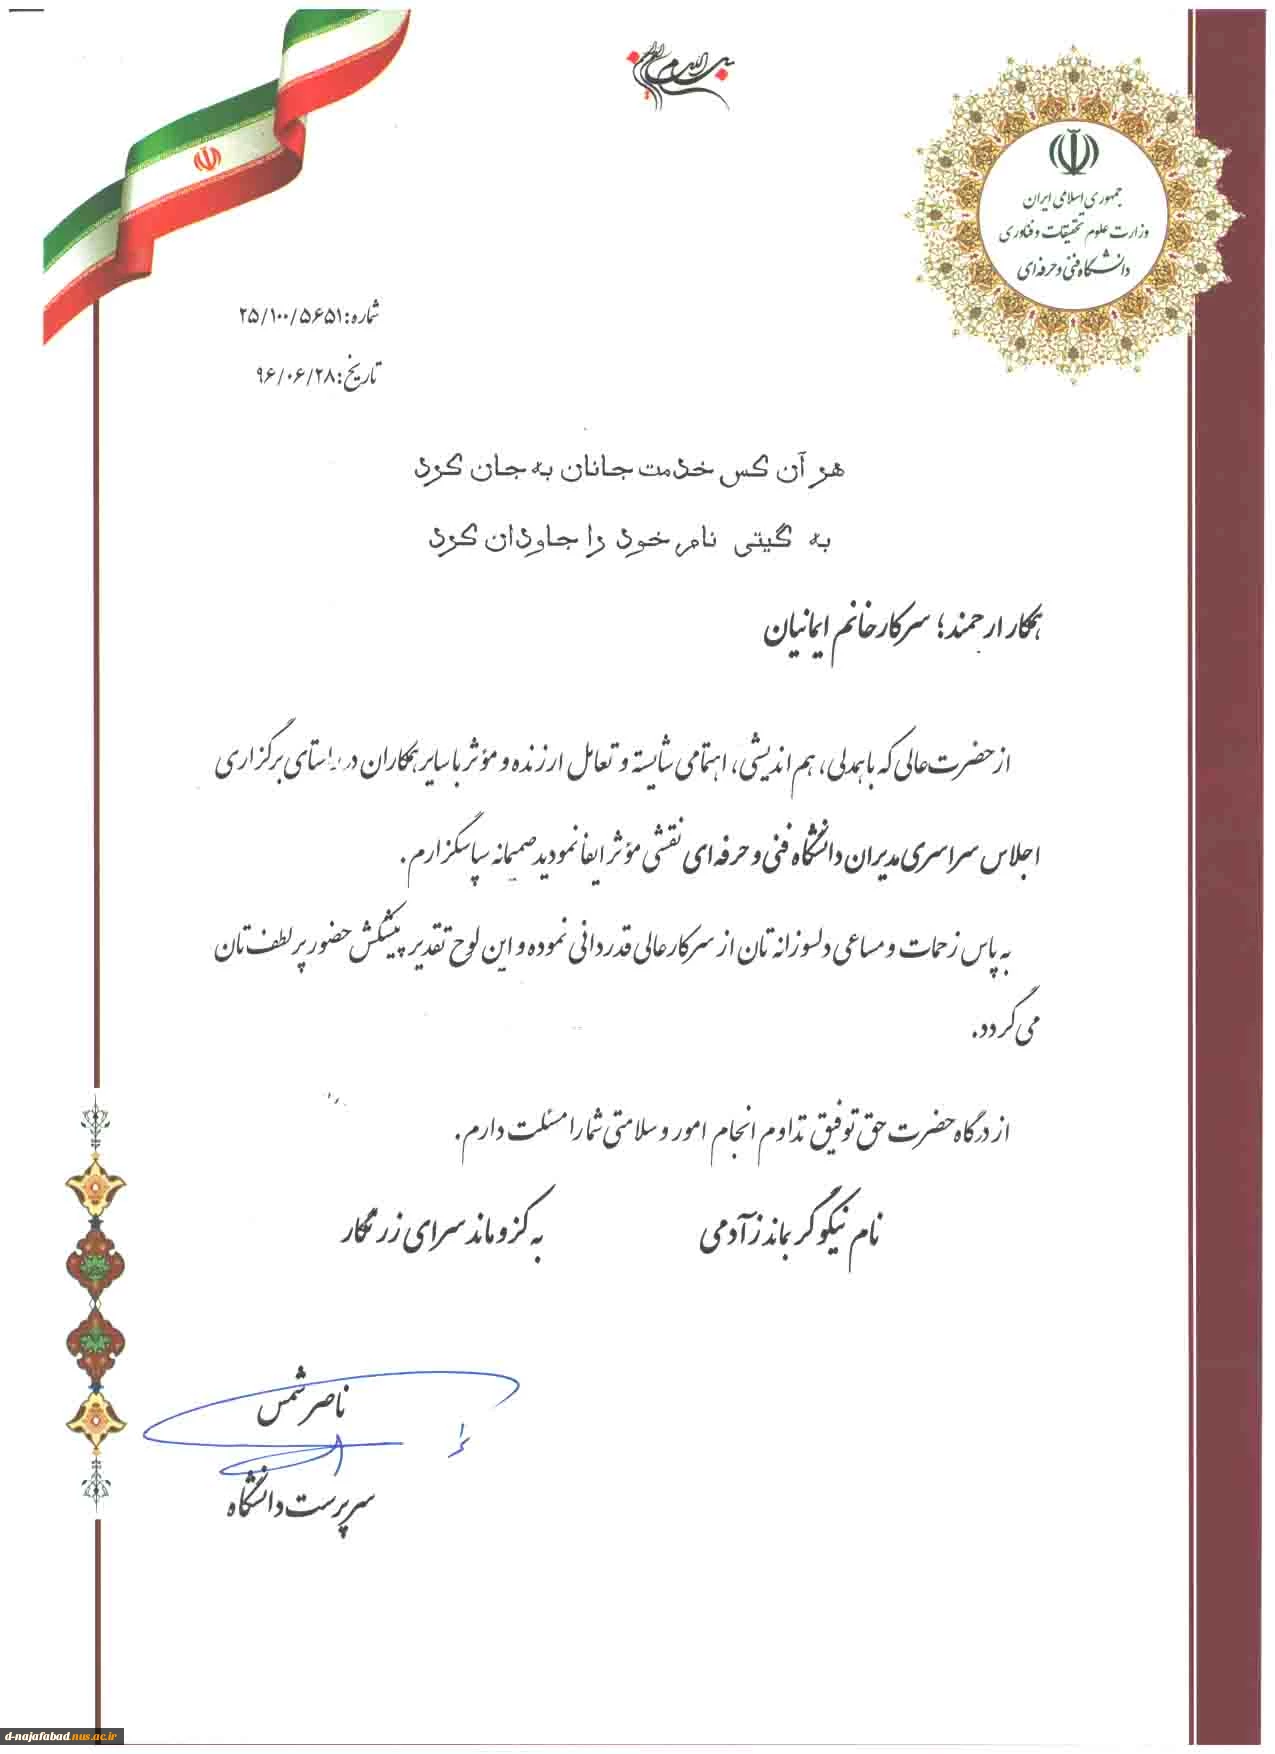 بسم الله الرحمن الرحیم
جمهوری اسلامی ایران
وزارت علوم تحقیقات و فناوری
دانشگاه فنی و حرفه ای
شماره: ۲۵/۱۰۰/۵۶۵۱
تاریخ: ۹۶/۰۶/۲۸
هر آن کس خدمت جانان به جان کرد
به گیتی نام خود را جاودان کرد
همکار ارجمند؛ سرکار خانم ایمانیان
از حضرت عالی که با همدلی، هم اندیشی، اهتمامی شایسته و تعامل ارزنده و مؤثر با سایر همکاران در راستای برگزاری
اجلاس سراسری مدیران دانشگاه فنی و حرفه ای نقشی مؤثر ایفا نمودید صمیمانه سپاسگزارم.
به پاس زحمات و مساعی دلسوزانه تان از سرکار عالی قدردانی نموده و این لوح تقدیر پیشکش حضور پر لطف تان
می گردد.
از درگاه حضرت حق توفیق تداوم انجام امور و سلامتی شما را مسئلت دارم.
نام نیکو گر بماند ز آدمی به کزو ماند سرای زرنگار
ناصر شمس
سرپرست دانشگاه
d-najafabad.nus.ac.ir